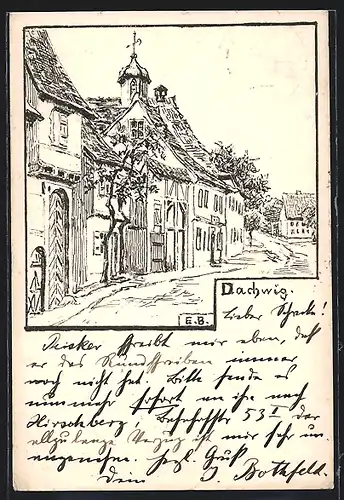 E.B.
Dachwig.
Lieber Schacke!
Kieker schreibt mir eben, daß
er das Rundschreiben immer
noch nicht hat. Bitte sende es
nunmehr sofort an ihn nach
Hirschberg, Bahnhofstr 53 I der
allzulange Verzug ist mir sehr un-
angenehm. Herzl. Gruß
Dein J. Bothfeld.